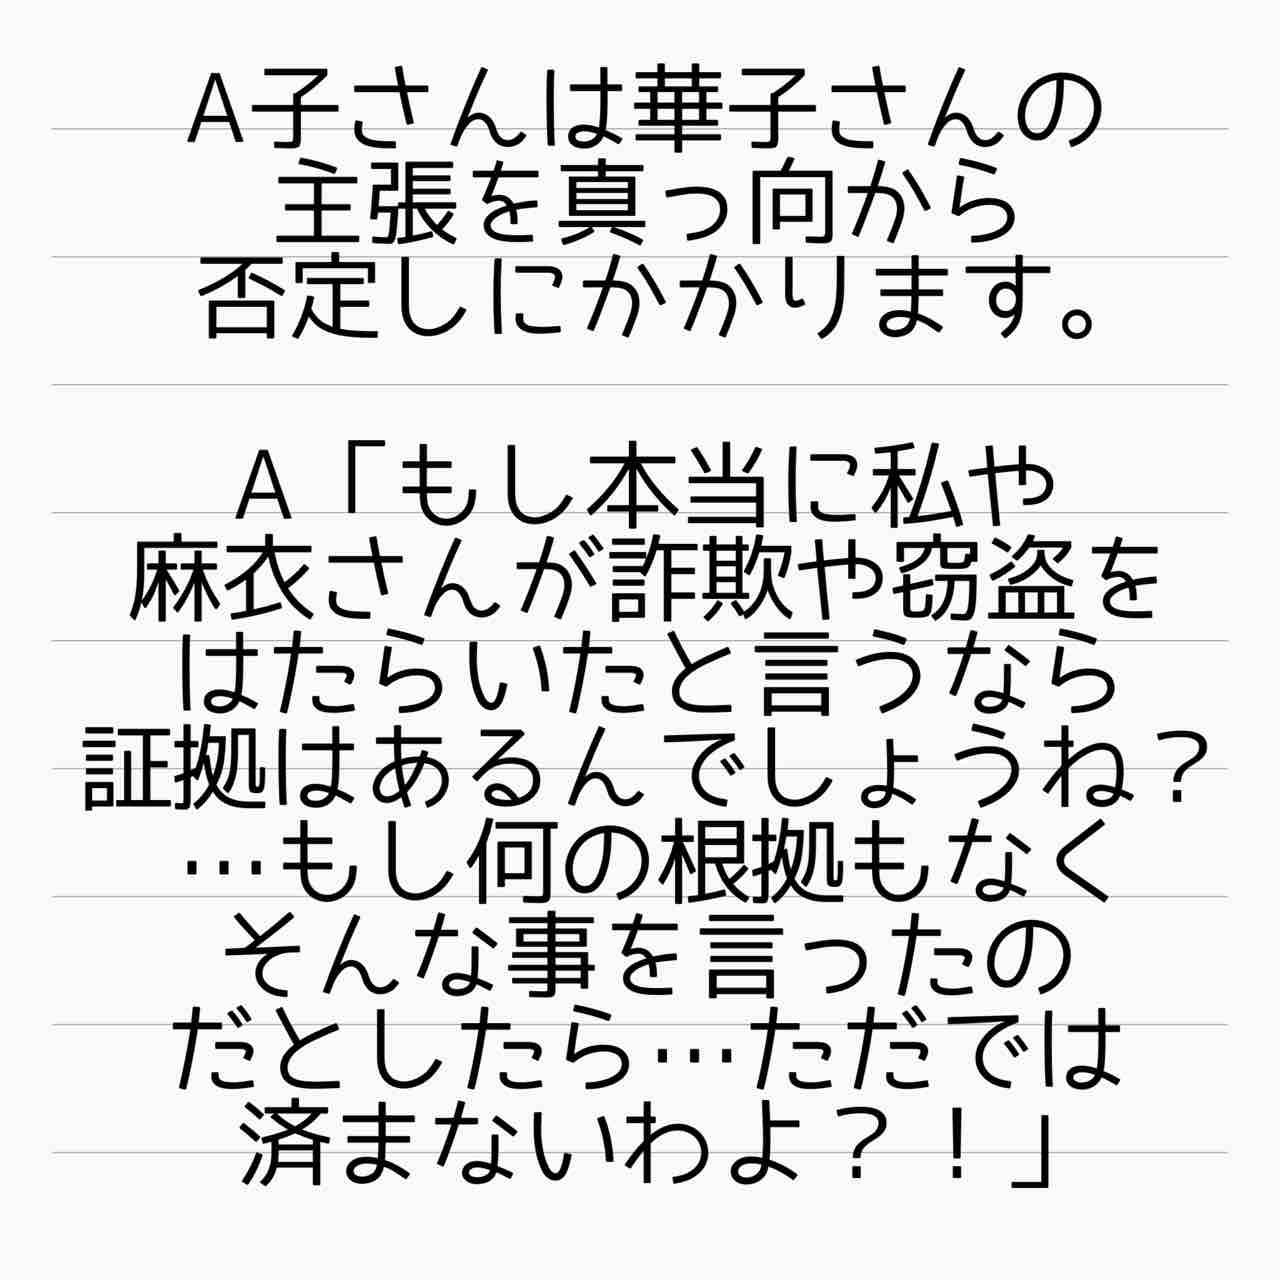 A子さんは華子さんの
主張を真っ向から
否定しにかかります。
A「もし本当に私や
麻衣さんが詐欺や窃盗を
はたらいたと言うなら
証拠はあるんでしょうね？
…もし何の根拠もなく
そんな事を言ったの
だとしたら…ただでは
済まないわよ？！」